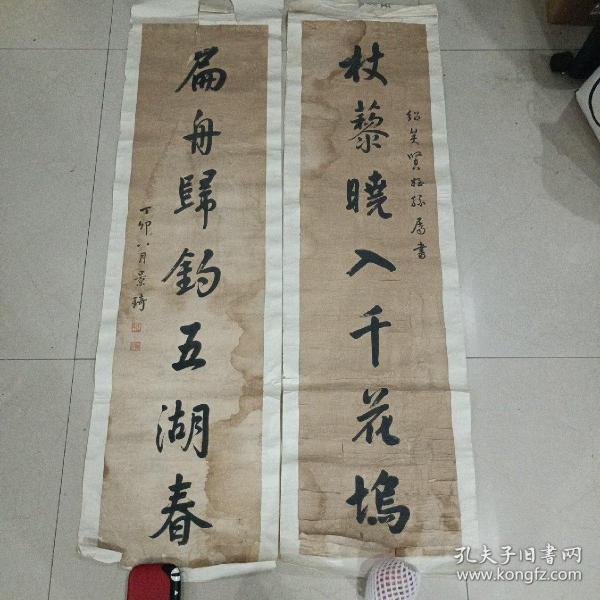 杖藜曉入千花塢
紹箕賢姪孫屬書
扁舟歸釣五湖春
丁卯八月景琦
孔夫子旧書网
www.kongfz.com